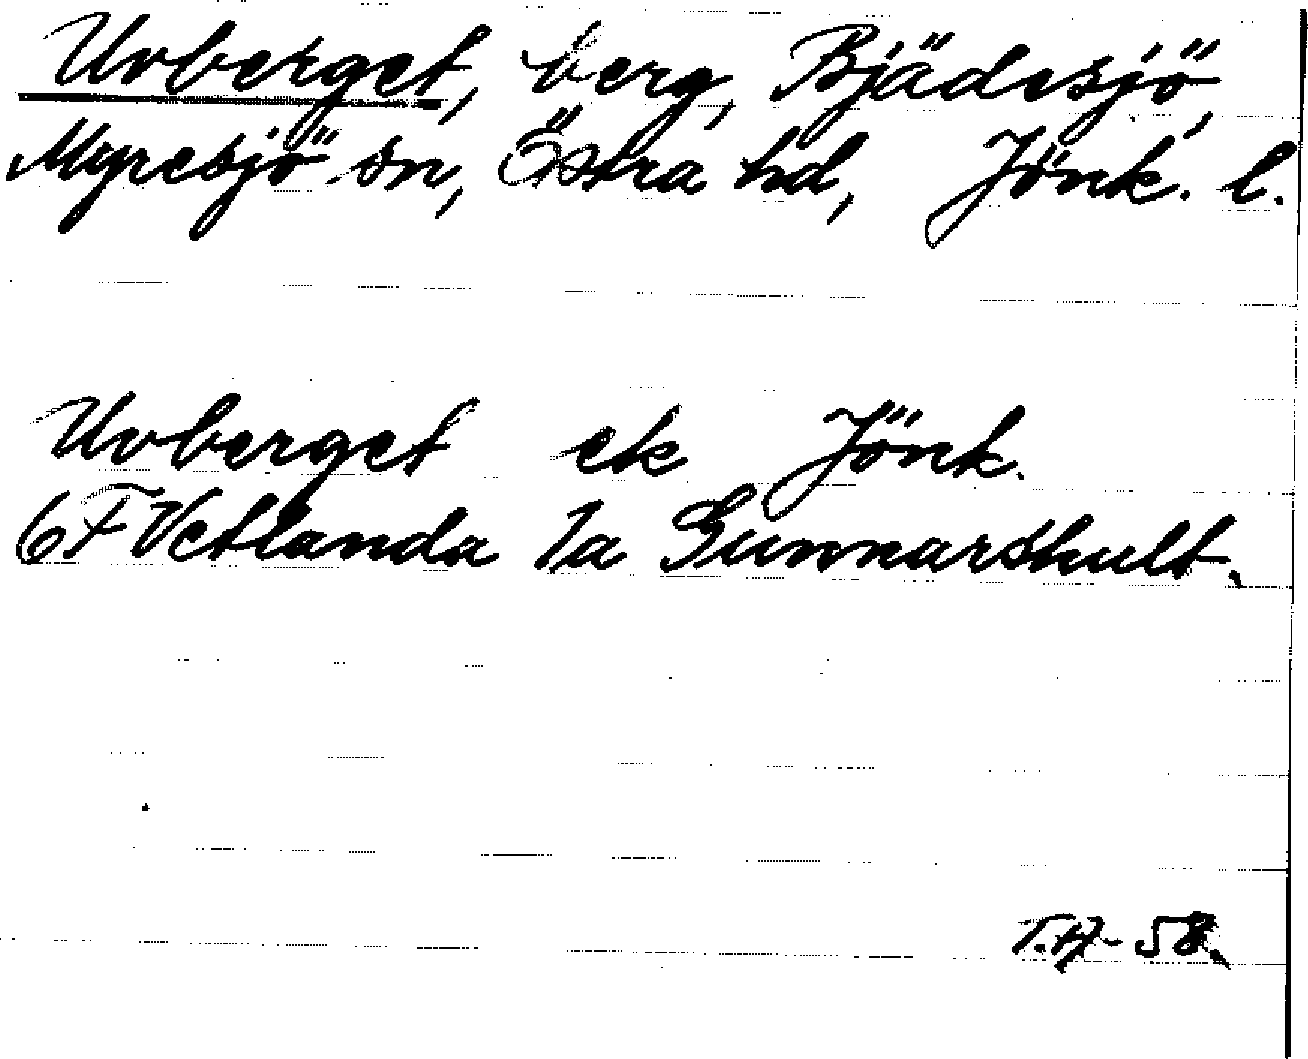 Uvberget, berg, Bjädesjö,
Myresjö sn, Östra hd, Jönk. l.
Uvberget ek Jönk.
6F Vetlanda 1a Gunnarskult.
T.A-58.